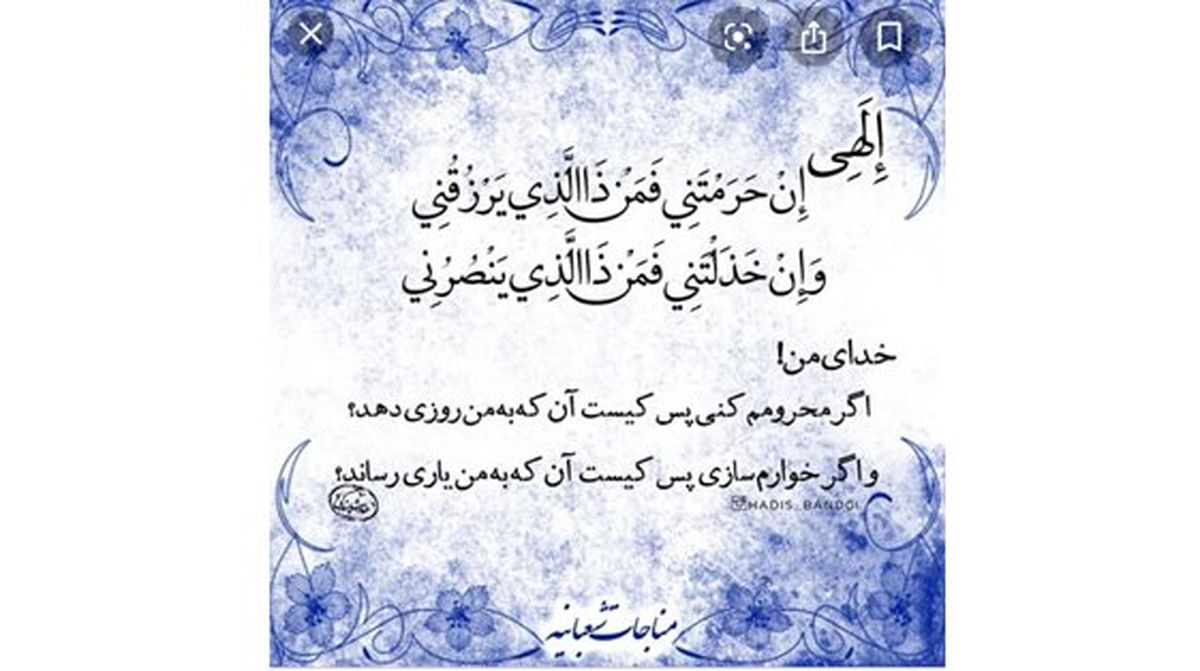 إِلَهِی
إِنْ حَرَمْتَنِي فَمَنْ ذَا الَّذِي يَرْزُقُنِي
وَإِنْ خَذَلْتَنِي فَمَنْ ذَا الَّذِي يَنْصُرُنِي
خدای من!
اگر محرومم کنی پس کیست آن که به من روزی دهد؟
و اگر خوارم سازی پس کیست آن که به من یاری رساند؟
HADIS_BANDGI
مناجات شعبانیه